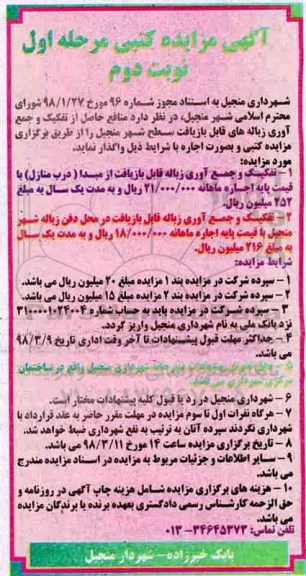 آگهی مزایده کتبی مرحله اول
نوبت دوم
شهرداری منجیل به استناد مجوز شماره ۹۶ مورخ ۹۸/۱/۲۷ شورای
محترم اسلامی شهر منجیل، در نظر دارد منافع حاصل از تفکیک و جمع
آوری زباله های قابل بازیافت سطح شهر منجیل را از طریق برگزاری
مزایده کتبی و بصورت اجاره با شرایط ذیل واگذار نماید.
مورد مزایده:
۱ – تفکیک و جمع آوری زباله قابل بازیافت از مبدا ( درب منازل) با
قیمت پایه اجاره ماهانه ۲۱/۰۰۰/۰۰۰ ریال و به مدت یک سال به مبلغ
۲۵۲ میلیون ریال.
۲ – تفکیک و جمع آوری زباله قابل بازیافت در محل دفن زباله شهر
منجیل با قیمت پایه اجاره ماهانه ۱۸/۰۰۰/۰۰۰ ریال و به مدت یک سال
به مبلغ ۲۱۶ میلیون ریال.
شرایط مزایده:
۱ – سپرده شرکت در مزایده بند ۱ مزایده مبلغ ۲۰ میلیون ریال می باشد.
۲ – سپرده شرکت در مزایده بند ۲ مزایده مبلغ ۱۵ میلیون ریال می باشد.
۳ – سپرده شرکت در مزایده باید به حساب شماره ۳۱۰۰۰۰۱۰۲۴۰۰۴
نزد بانک ملی به نام شهرداری منجیل واریز گردد.
۴ – حداکثر مهلت قبول پیشنهادات تا آخر وقت اداری تاریخ ۹۸/۳/۹
می باشد.
۵ – محل تحویل پیشنهادات دبیرخانه شهرداری منجیل واقع در ساختمان
مرکزی شهرداری می باشد.
۶ – شهرداری در رد یا قبول کلیه پیشنهادات مختار است.
۷ – هرگاه نفرات اول تا سوم مزایده در مهلت مقرر حاضر به عقد قرارداد با
شهرداری نگردند سپرده آنان به ترتیب به نفع شهرداری ضبط خواهد شد.
۸ – تاریخ برگزاری مزایده ساعت ۱۴ مورخ ۹۸/۳/۱۱ می باشد.
۹ – سایر اطلاعات و جزئیات مربوط به مزایده در اسناد مزایده مندرج
می باشد.
۱۰ – هزینه های برگزاری مزایده شامل هزینه چاپ آگهی در روزنامه و
حق الزحمه کارشناس رسمی دادگستری بعهده برنده یا برندگان مزایده
می باشد.
تلفن تماس: ۳۴۶۴۵۳۷۳ – ۰۱۳
بابک خیرزاده – شهردار منجیل